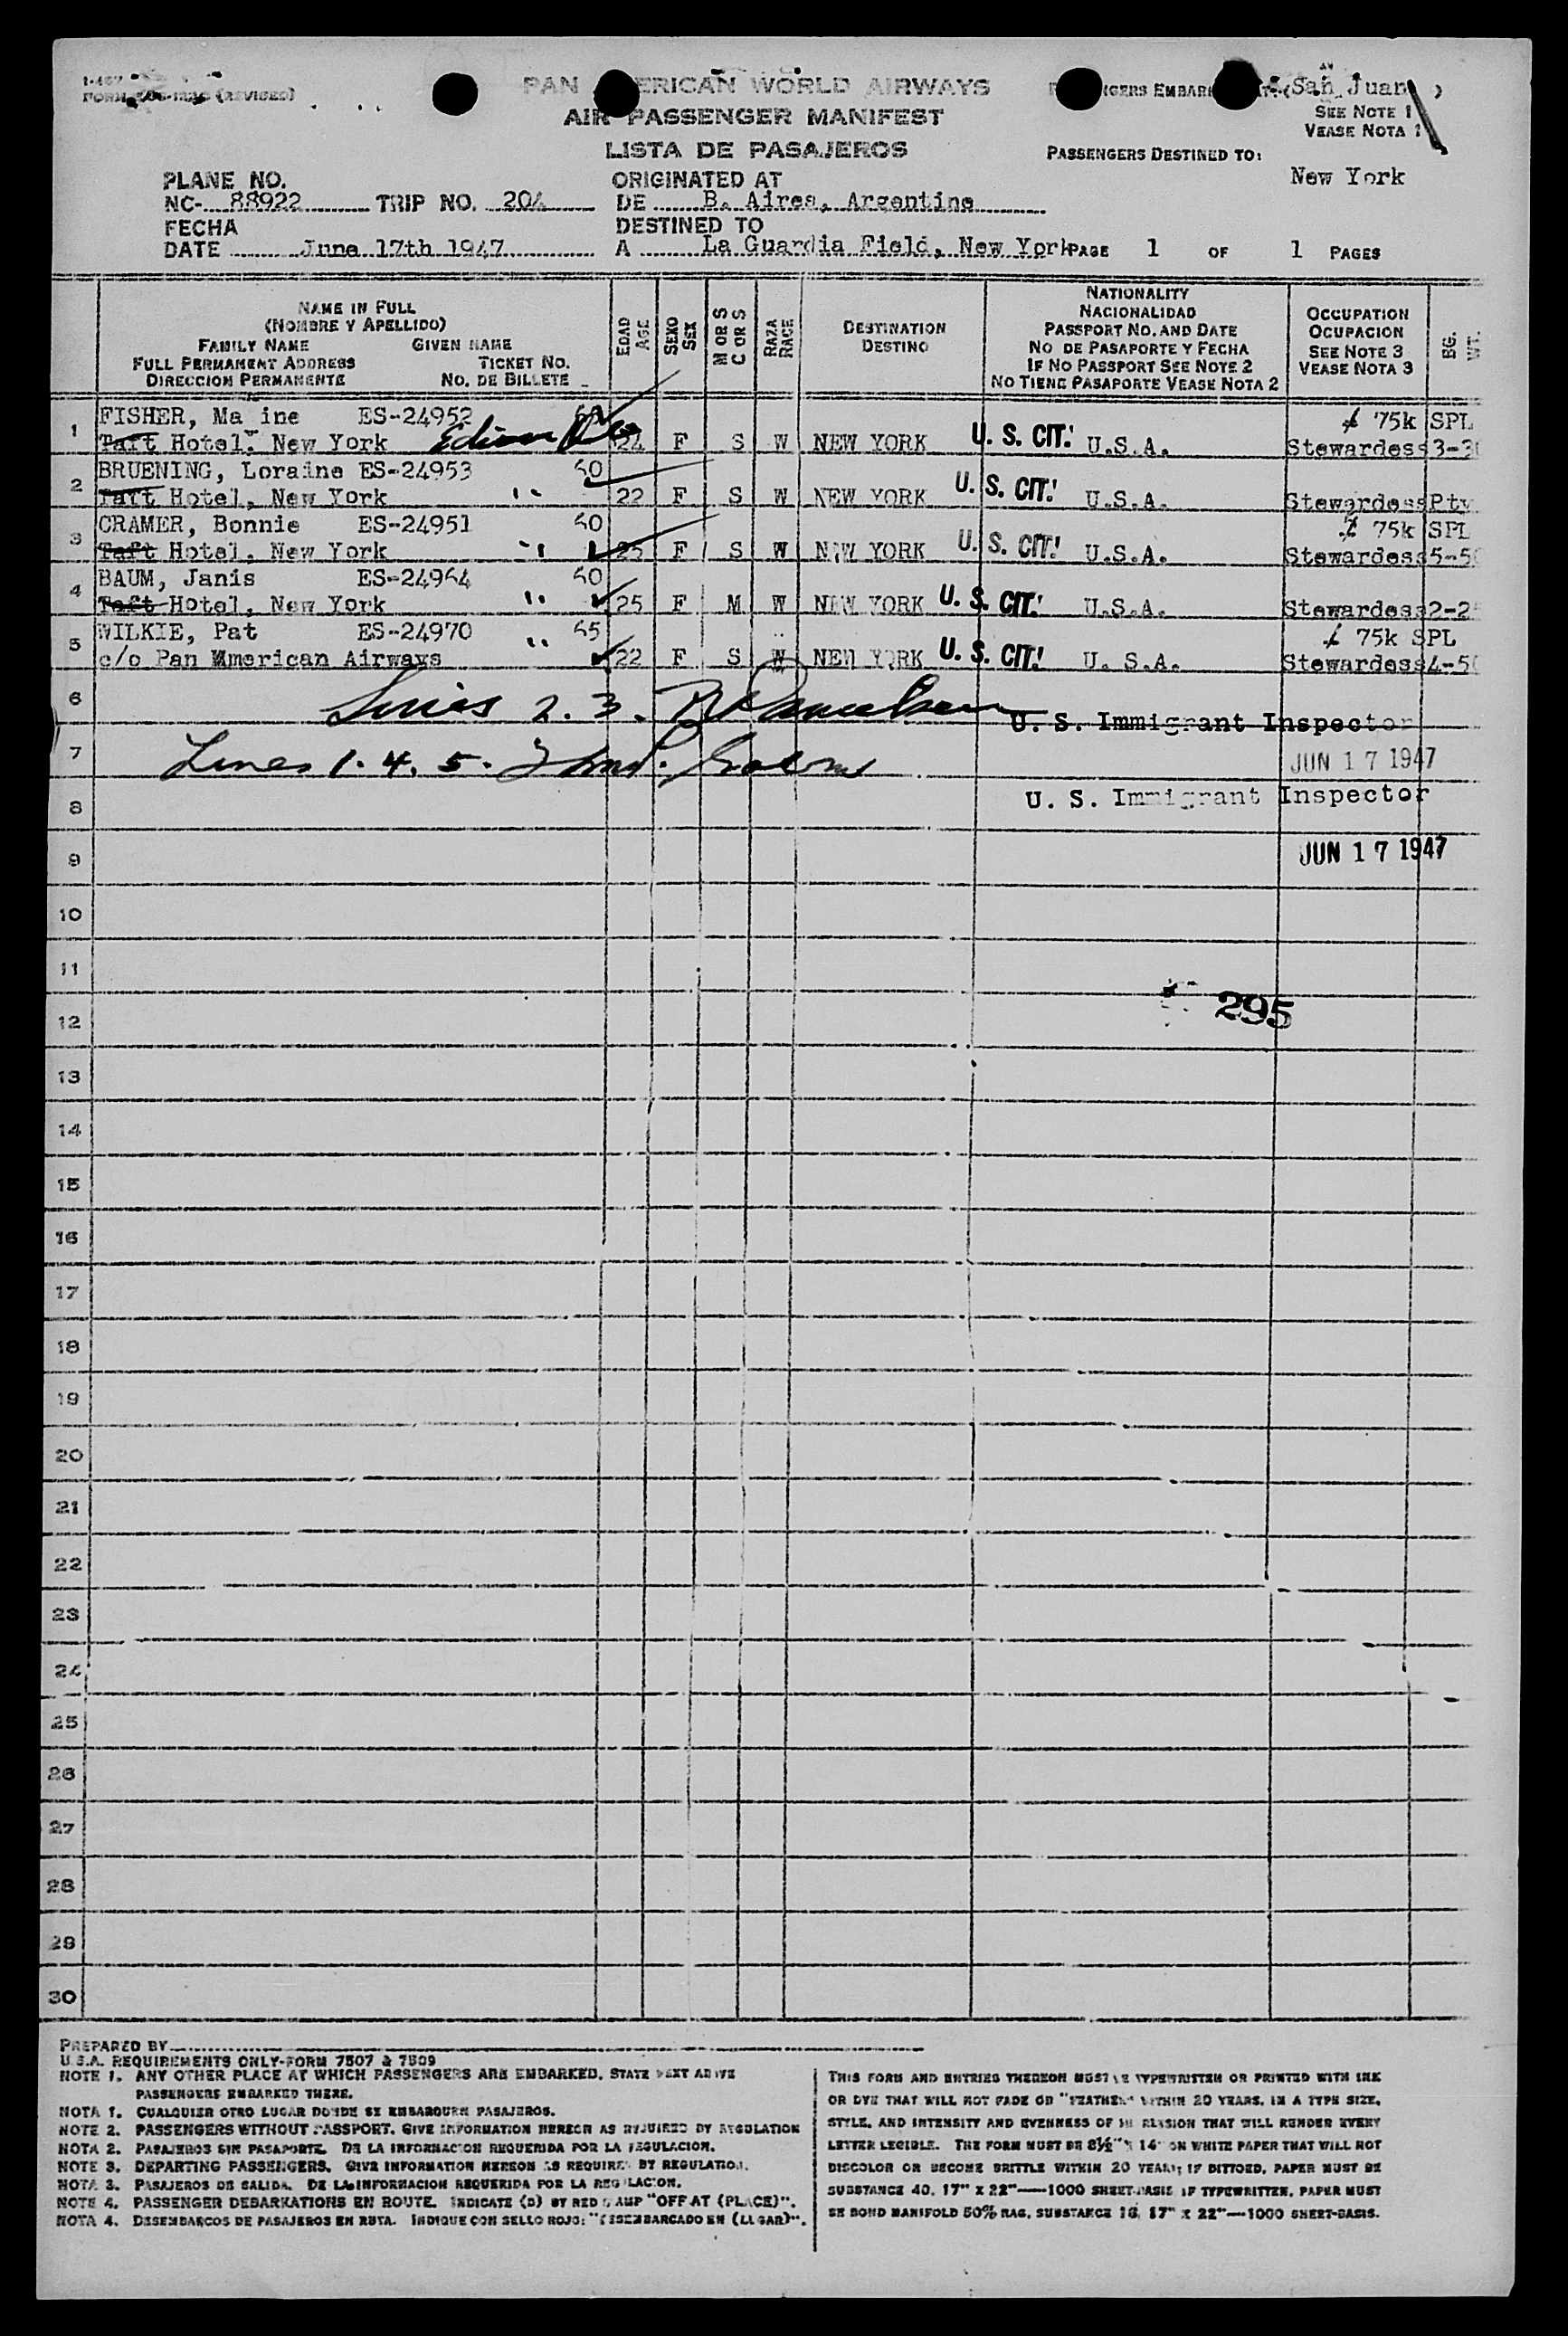 FORM (REVISED)
PAN AMERICAN WORLD AIRWAYS
AIR PASSENGER MANIFEST
LISTA DE PASAJEROS
San Juan )
SEE NOTE 1
VEASE NOTA 1
PASSENGERS DESTINED TO:
New York
PLANE NO.
NC- 88922 TRIP NO. 204
ORIGINATED AT
DE B. Aires, Argentina
FECHA
DATE June 17th 1947
DESTINED TO
A La Guardia Field, New York PAGE 1 OF 1 PAGES
NAME IN FULL
(NOMBRE Y APELLIDO)
FAMILY NAME GIVEN NAME
FULL PERMANENT ADDRESS TICKET NO.
DIRECCION PERMANENTE NO. DE BILLETE
EDAD
AGE
SEXO
SEX
M OR S
C OR S
RAZA
RACE
DESTINATION
DESTINO
NATIONALITY
NACIONALIDAD
PASSPORT NO. AND DATE
NO DE PASAPORTE Y FECHA
IF NO PASSPORT SEE NOTE 2
NO TIENE PASAPORTE VEASE NOTA 2
OCCUPATION
OCUPACION
SEE NOTE 3
VEASE NOTA 3
BG.
WT.
1 FISHER, Ma ine ES-24952 75k SPL
Taft Hotel, New York Edison 24 F S W NEW YORK U. S. CIT. U.S.A. Stewardess 3-3
2 BRUENING, Loraine ES-24953 60
Taft Hotel, New York " 22 F S W NEW YORK U. S. CIT. U.S.A. Stewardess Pty
3 CRAMER, Bonnie ES-24951 60 75k SPL
Taft Hotel, New York " 25 F S W NEW YORK U. S. CIT. U.S.A. Stewardess 5-5
4 BAUM, Janis ES-24964 60
Taft Hotel, New York " 25 F M W NEW YORK U. S. CIT. U.S.A. Stewardess 2-2
5 WILKIE, Pat ES-24970 65 75k SPL
c/o Pan Mmerican Airways " 22 F S W NEW YORK U. S. CIT. U. S.A. Stewardess 4-5
6 Lines 2. 3.
U. S. Immigrant Inspector
7 Lines 1. 4. 5.
JUN 17 1947
8 U. S. Immigrant Inspector
9 JUN 17 1947
10
11
12 295
13
14
15
16
17
18
19
20
21
22
23
24
25
26
27
28
29
30
PREPARED BY
U.S.A. REQUIREMENTS ONLY-FORM 7507 & 7509
NOTE 1. ANY OTHER PLACE AT WHICH PASSENGERS ARE EMBARKED, STATE NEXT ABOVE
PASSENGERS EMBARKED THERE.
NOTA 1. CUALQUIER OTRO LUGAR DONDE SE EMBARQUEN PASAJEROS.
NOTE 2. PASSENGERS WITHOUT PASSPORT. GIVE INFORMATION HEREON AS REQUIRED BY REGULATION
NOTA 2. PASAJEROS SIN PASAPORTE. DE LA INFORMACION REQUERIDA POR LA REGULACION.
NOTE 3. DEPARTING PASSENGERS. GIVE INFORMATION HEREON AS REQUIRED BY REGULATION.
NOTA 3. PASAJEROS DE SALIDA. DE LA INFORMACION REQUERIDA POR LA REGULACION.
NOTE 4. PASSENGER DEBARKATIONS EN ROUTE. INDICATE (D) BY RED STAMP "OFF AT (PLACE)".
NOTA 4. DESEMBARCOS DE PASAJEROS EN RUTA. INDIQUE CON SELLO ROJO: "DESEMBARCADO EN (LUGAR)".
THIS FORM AND ENTRIES THEREON MUST BE TYPEWRITTEN OR PRINTED WITH INK
OR DYE THAT WILL NOT FADE OR "FEATHER" WITHIN 20 YEARS, IN A TYPE SIZE,
STYLE, AND INTENSITY AND EVENNESS OF IMPRESSION THAT WILL RENDER EVERY
LETTER LEGIBLE. THE FORM MUST BE 8½" X 14" ON WHITE PAPER THAT WILL NOT
DISCOLOR OR BECOME BRITTLE WITHIN 20 YEARS; IF DITTOED, PAPER MUST BE
SUBSTANCE 40, 17" X 22"—1000 SHEET-BASIS IF TYPEWRITTEN, PAPER MUST
BE BOND MANIFOLD 50% RAG, SUBSTANCE 16, 17" X 22"—1000 SHEET-BASIS.